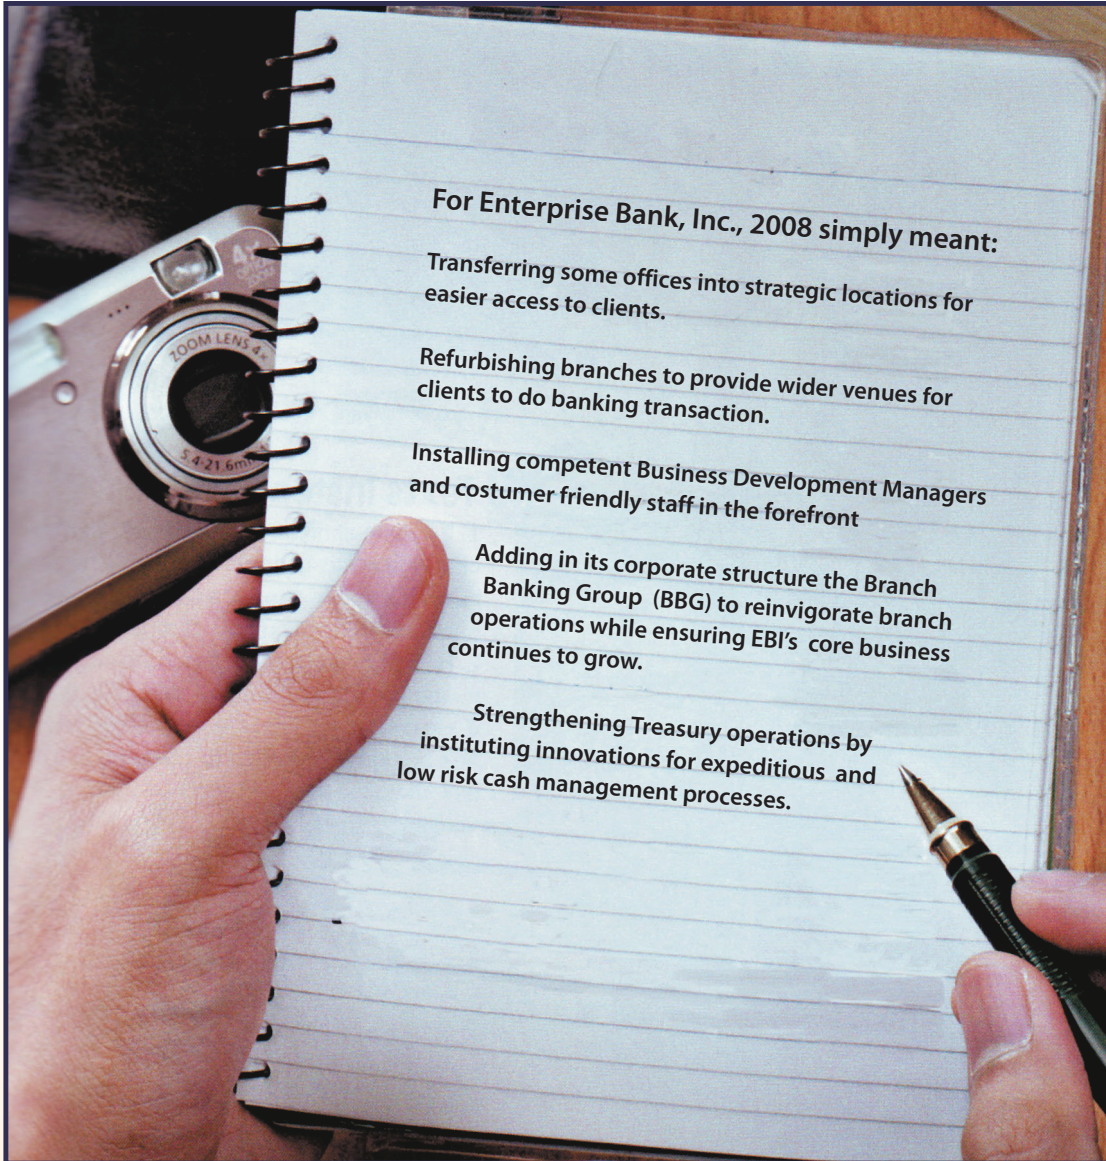 For Enterprise Bank, Inc., 2008 simply meant:
Transferring some offices into strategic locations for
easier access to clients.
Refurbishing branches to provide wider venues for
clients to do banking transaction.
Installing competent Business Development Managers
and costumer friendly staff in the forefront
Adding in its corporate structure the Branch
Banking Group (BBG) to reinvigorate branch
operations while ensuring EBI's core business
continues to grow.
Strengthening Treasury operations by
instituting innovations for expeditious and
low risk cash management processes.
4x
ZOOM LENS 4x
5.4-21.6mm